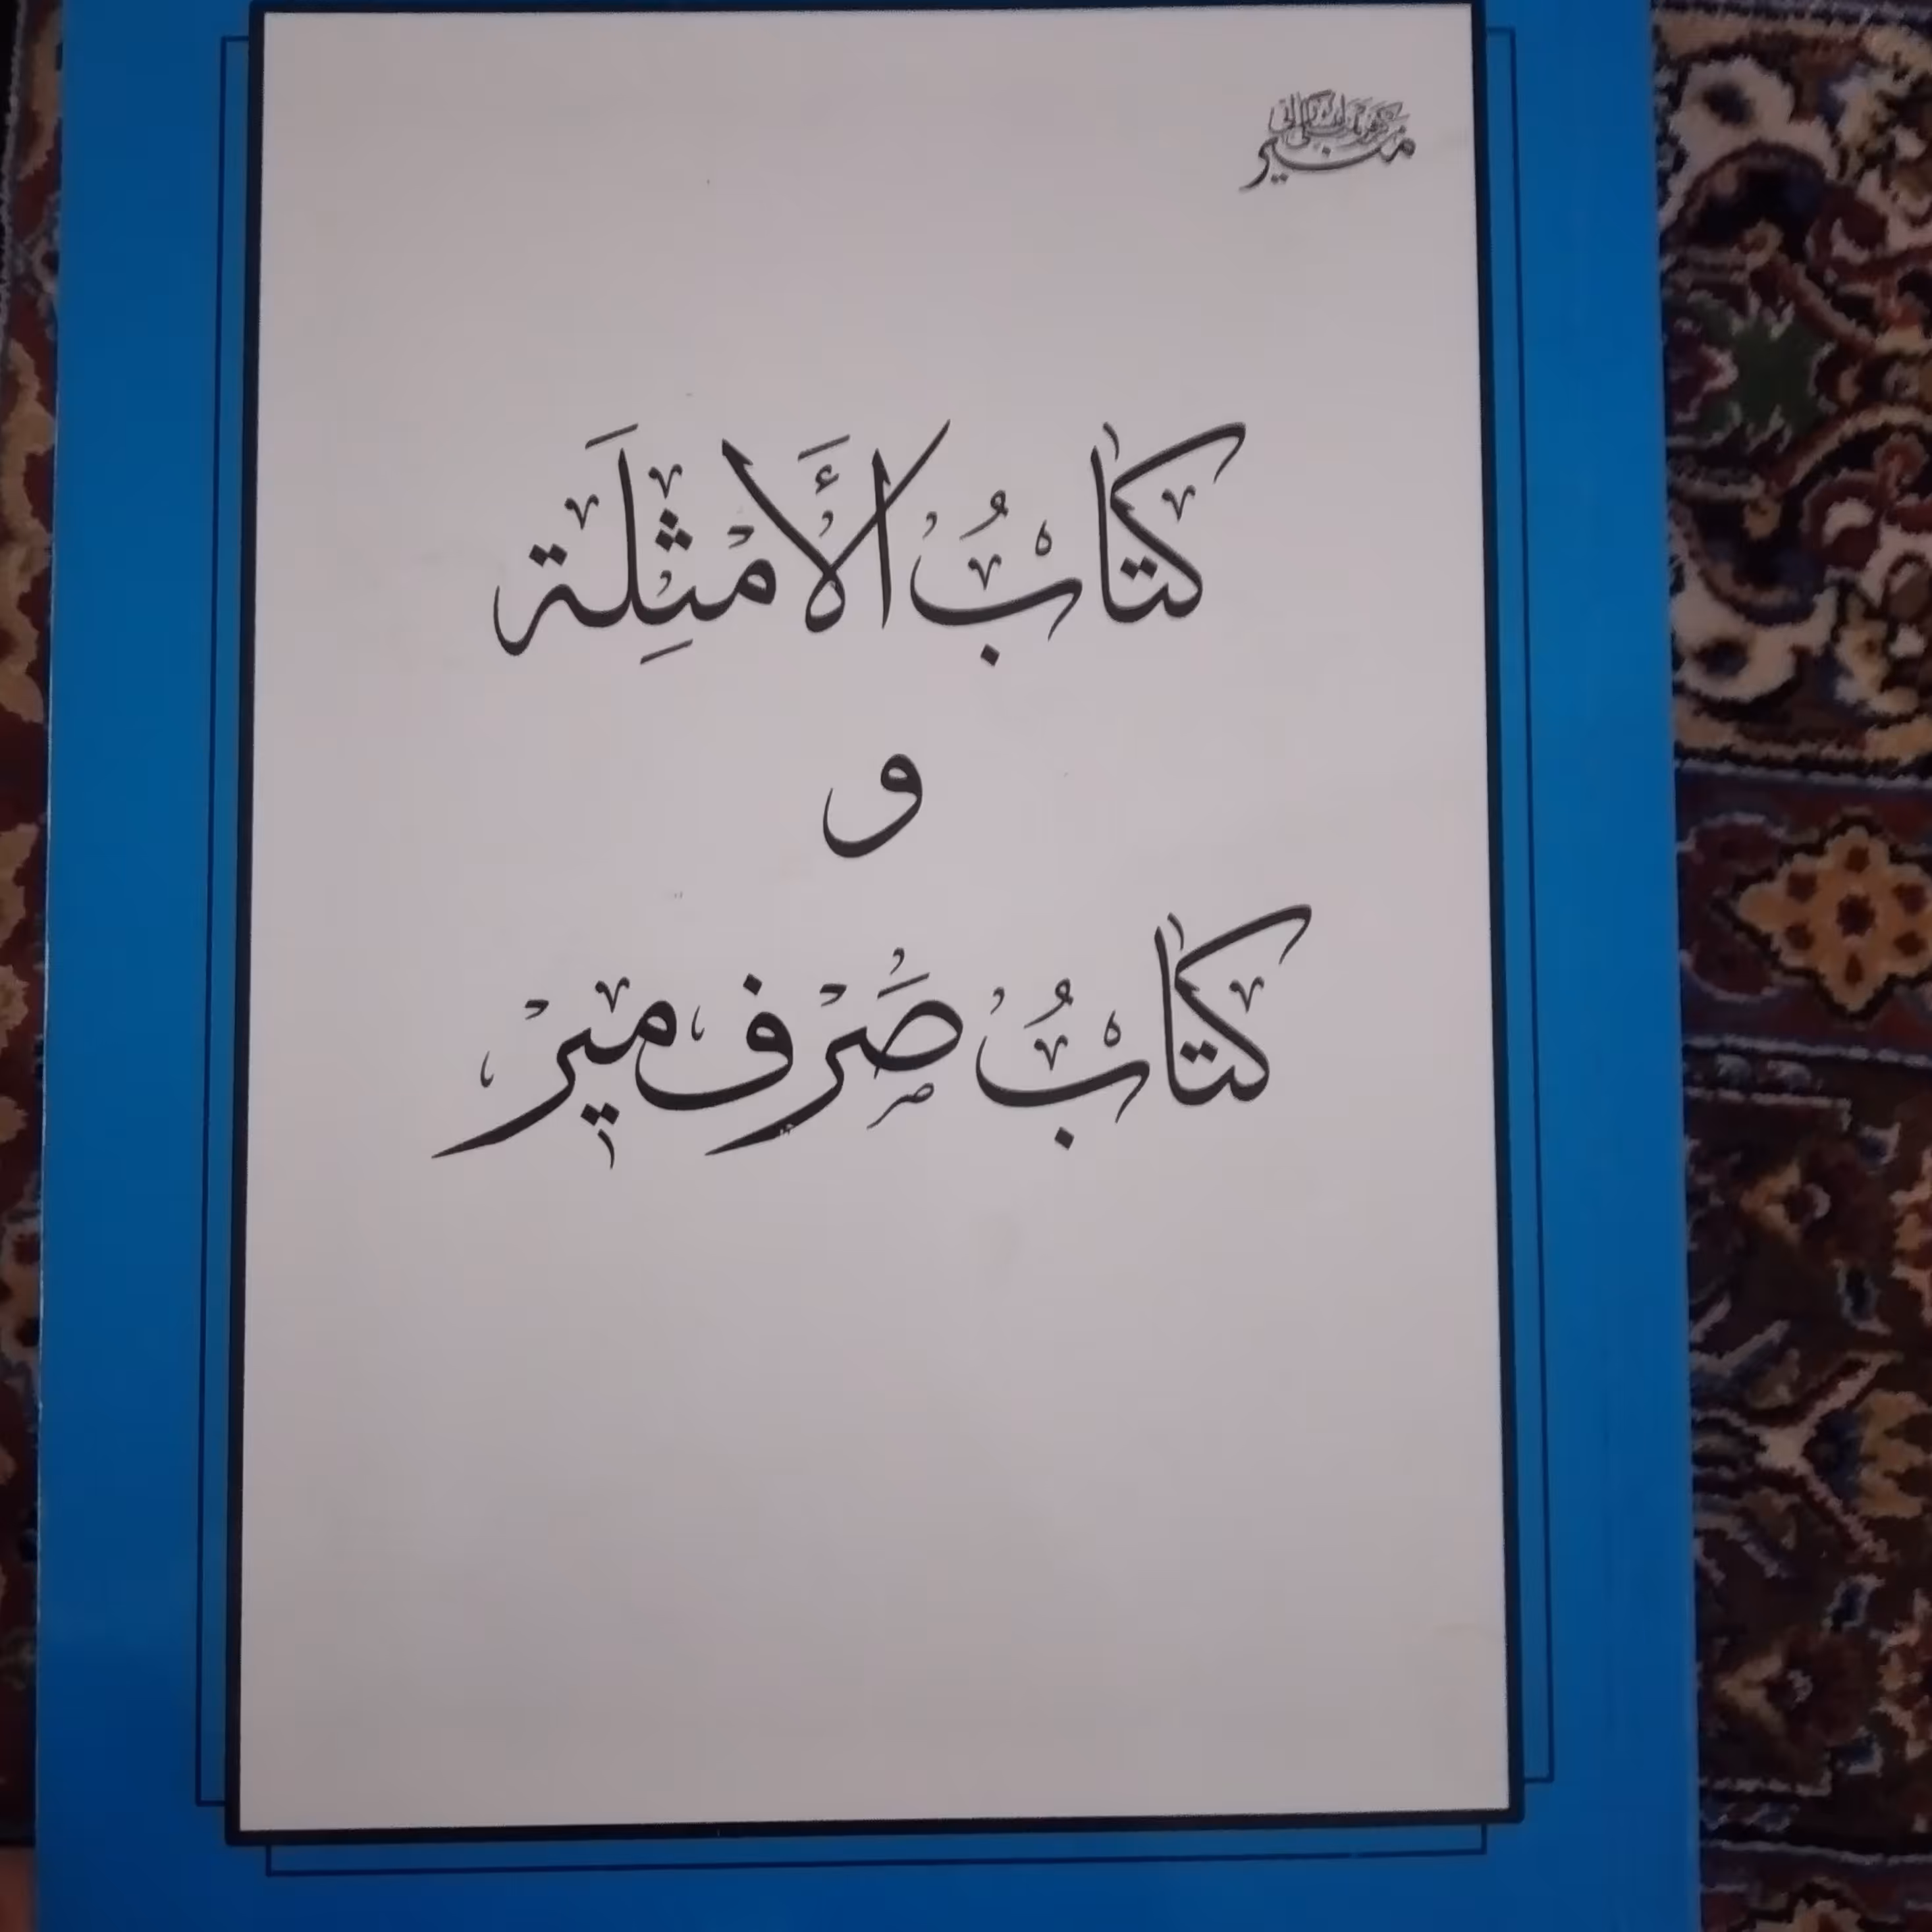 منير
كِتَابُ الْأَمْثِلَة
و
كِتَابُ صَرْف مِيرْ